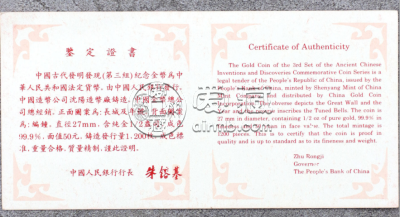 鉴定證書
中國古代發明發現(第三組)紀念金幣為中
華人民共和國法定貨幣,由中國人民銀行發行,
中國造幣公司沈陽造幣廠鑄造,中國金幣總公
司總經銷。正面圖案為:長城及
編鐘,直徑27mm,含純金1/2盎司,成色
99.9%,面值50元,鑄造發行量1,200枚,成色標
準,重量合格,質量精制,謹此證明。
中國人民銀行行長
Certificate of Authenticity
The Gold Coin of the 3rd Set of the Ancient Chinese
Inventions and Discoveries Commemorative Coin Series is a
legal tender of the People's Republic of China, issued by the
People's Bank of China, minted by Shenyang Mint of China
Mint Company and distributed by China Gold Coin
Incorporation. The obverse depicts the Great Wall and the
reverse describes the Tuned Bells. The coin is
27 mm in diameter, containing 1/2 oz of pure gold, 99.9%
in face value. The total mintage is
1200 pieces. This is to certify that the coin is proof in
quality and is up to standard as to its fineness and weight.
Zhu Rongji
Governor
The People's Bank of China